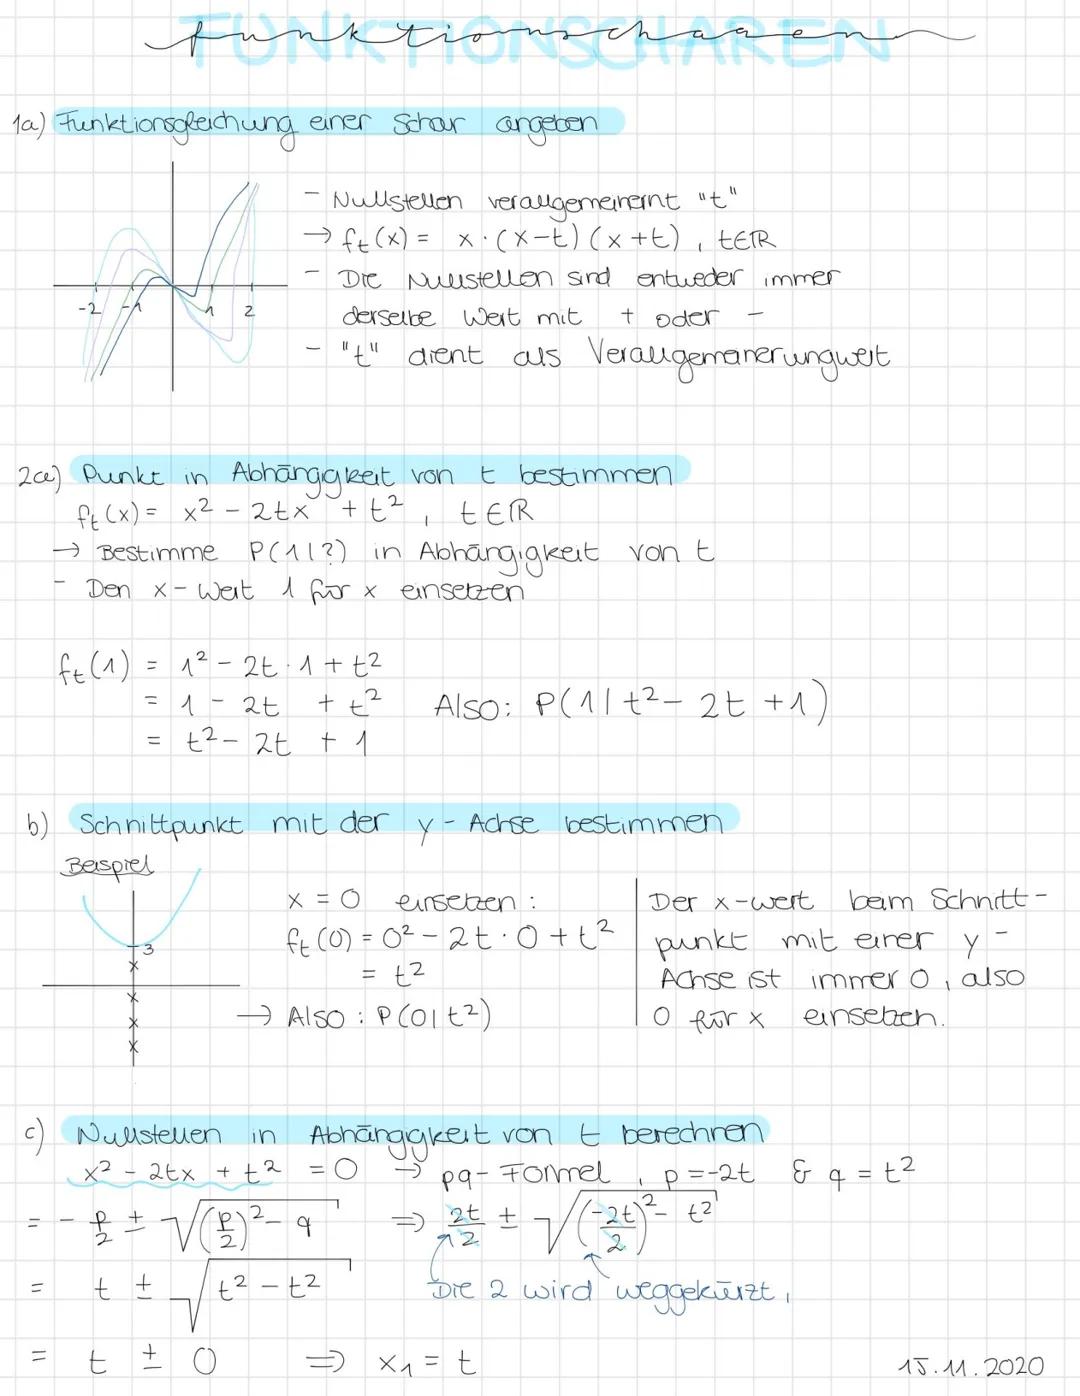 FUNKTIONSCHAREN
funktionscharen
1a) Funktionsgleichung einer Schar angeben
- Nullstellen verallgemeinernt "t"
→ ft(x) = x·(x-t)(x+t), t∈ℝ
- Die Nullstellen sind entweder immer
derselbe Wert mit + oder -
- "t" dient als Verallgemeinerungwert
-2 -1 1 2
2a) Punkt in Abhängigkeit von t bestimmen
ft(x) = x² - 2tx + t², t∈ℝ
→ Bestimme P(1|?) in Abhängigkeit von t
- Den x-Wert 1 für x einsetzen
ft(1) = 1² - 2t·1 + t²
= 1 - 2t + t² Also: P(1|t² - 2t + 1)
= t² - 2t + 1
b) Schnittpunkt mit der y-Achse bestimmen
Beispiel
3
x = 0 einsetzen:
ft(0) = 0² - 2t·0 + t²
= t²
→ Also: P(0|t²)
Der x-wert beim Schnitt-
punkt mit einer y-
Achse ist immer 0, also
0 für x einsetzen.
c) Nullstellen in Abhängigkeit von t berechnen
x² - 2tx + t² = 0 → pq-Formel, p = -2t & q = t²
= - p/2 ± √((p/2)² - q) ⇒ 2t/2 ± √((-2t/2)² - t²)
= t ± √(t² - t²) Die 2 wird weggekürzt,
= t ± 0 ⇒ x₁ = t
15.11.2020